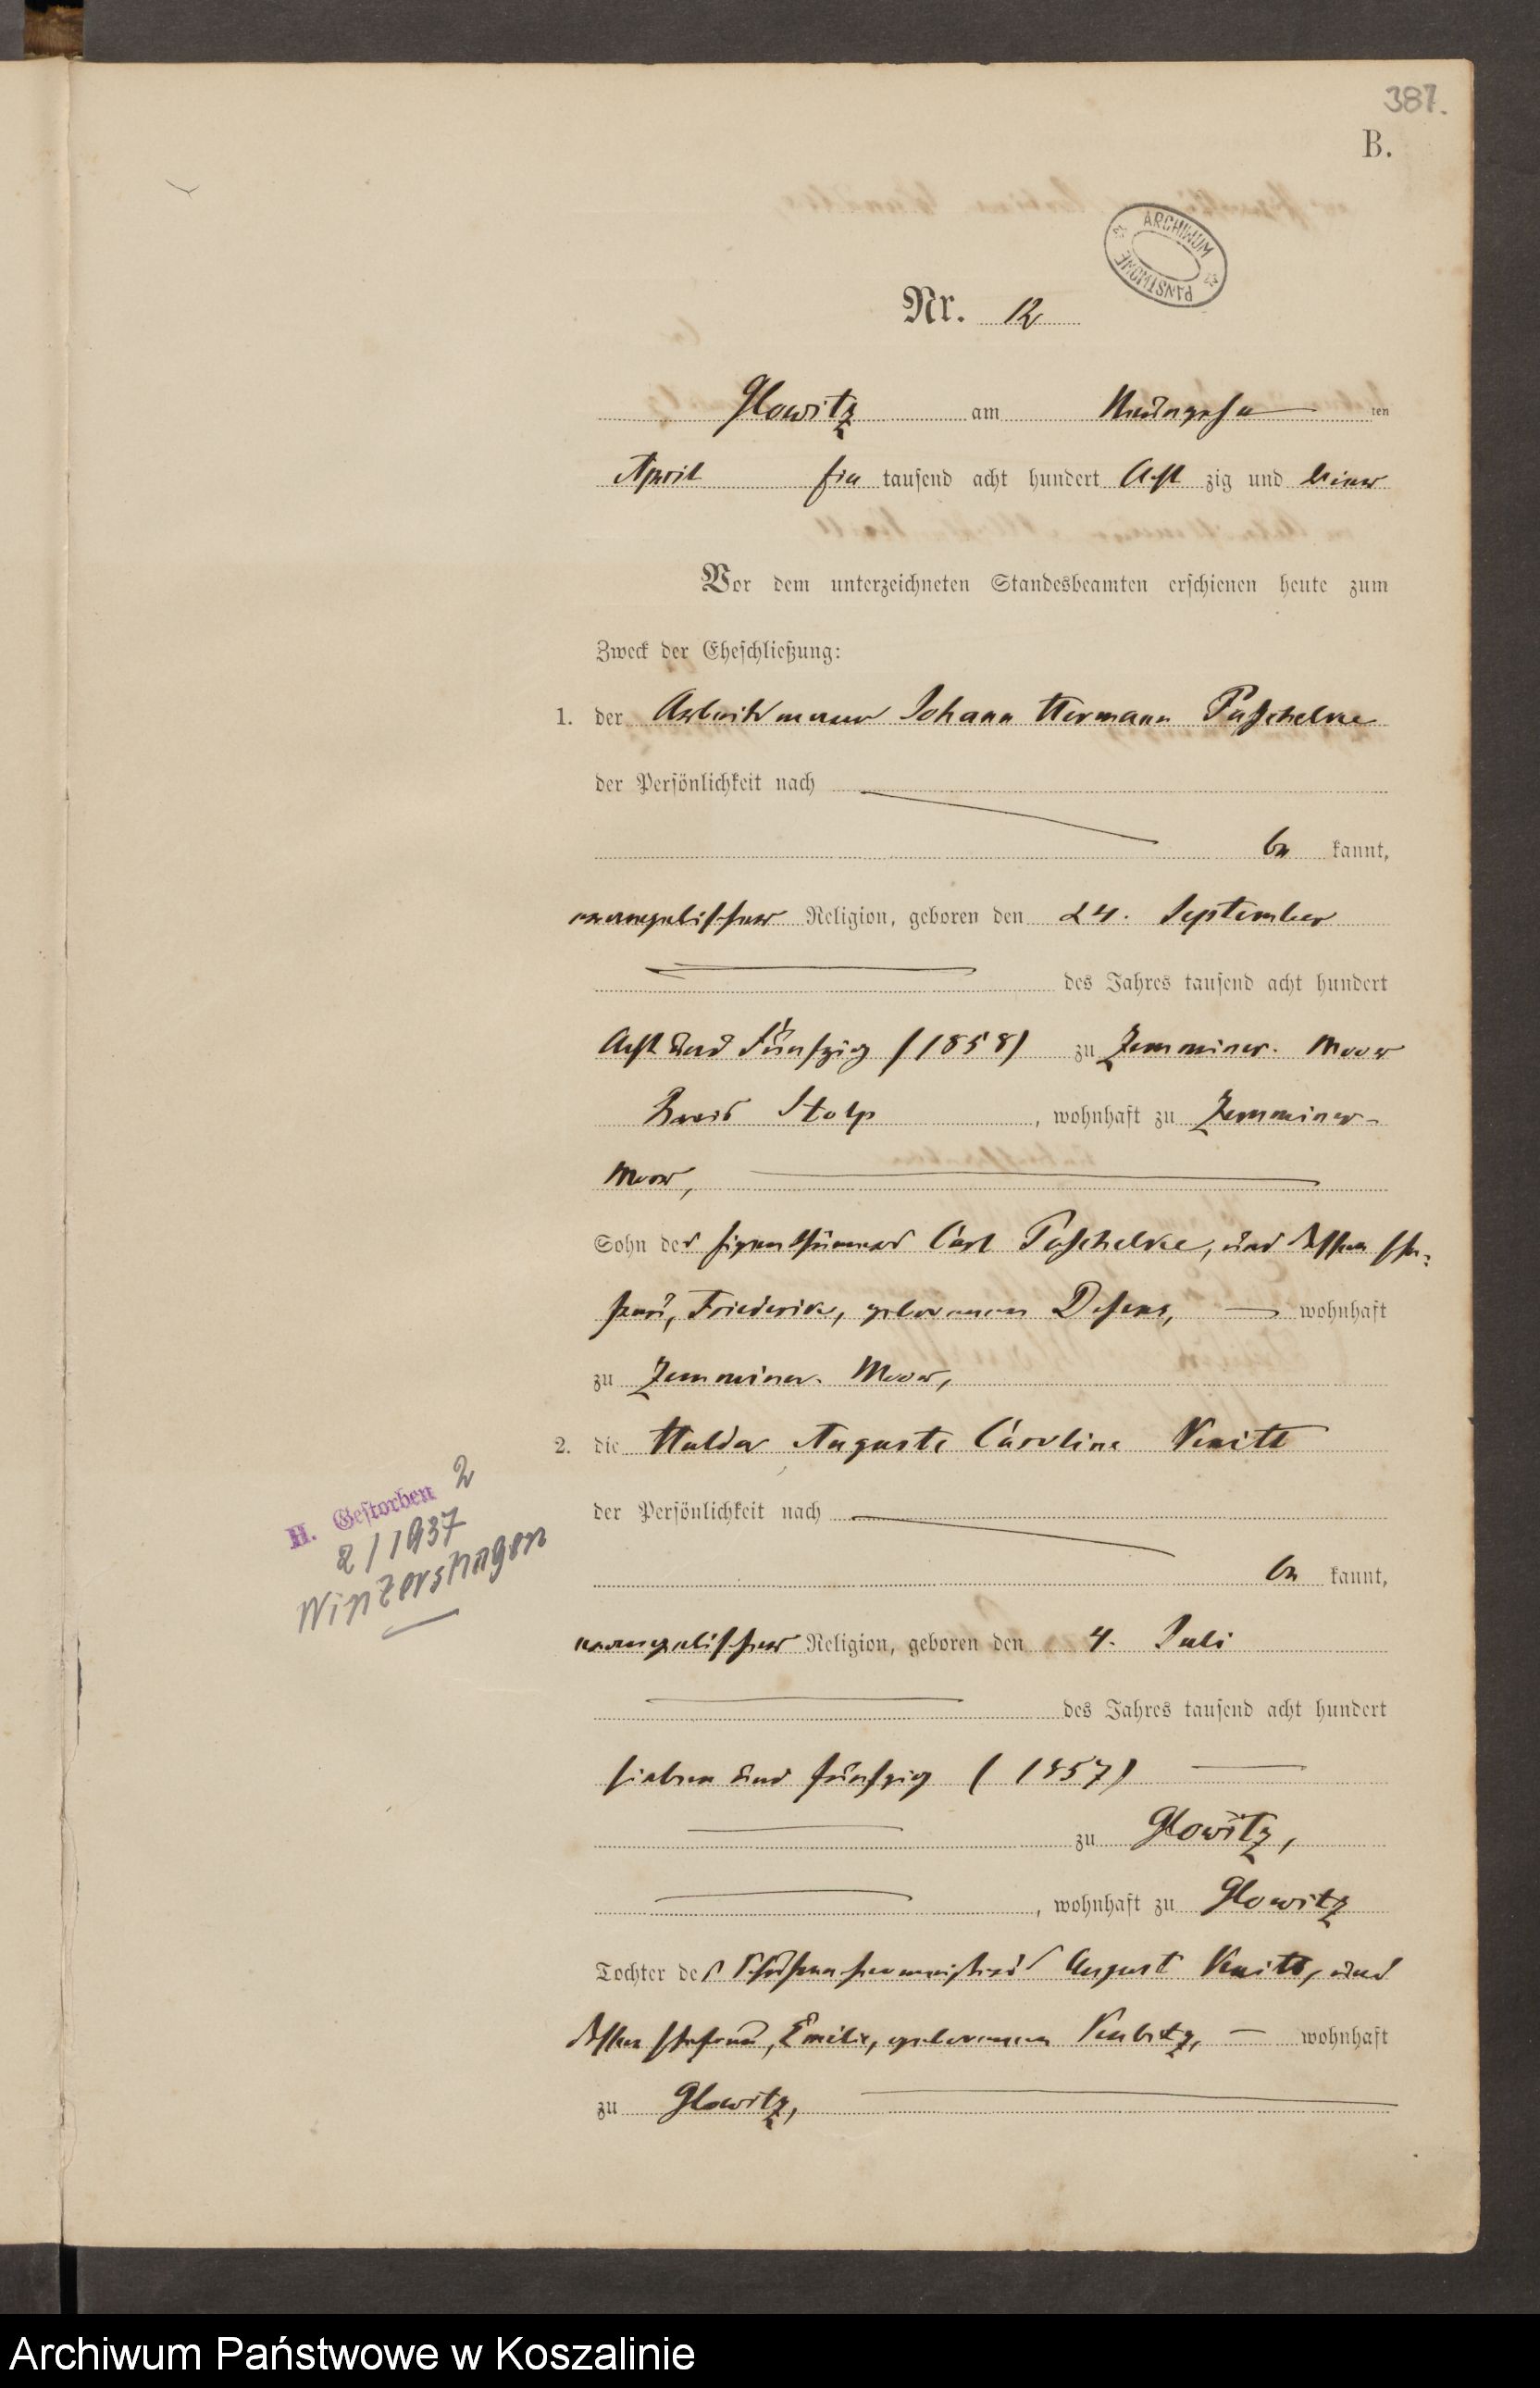 387.
B.
ARCHIWUM
PAŃSTWOWE
Nr. 12
Glowitz am Neunzehn ten
April Ein tausend acht hundert Acht zig und vier
Vor dem unterzeichneten Standesbeamten erschienen heute zum
Zweck der Eheschließung:
1. der Arbeitsmann Johann Hermann Paschelke
der Persönlichkeit nach
be kannt,
evangelischer Religion, geboren den 24. September
des Jahres tausend acht hundert
Acht und Fünfzig (1858) zu Zemminer-Moor
Kreis Stolp, wohnhaft zu Zemminer-
Moor,
Sohn des Eigenthümers Carl Paschelke, und dessen Ehe-
frau, Friederike, geborenen Desens, wohnhaft
zu Zemminer-Moor,
2. die Hulda Auguste Caroline Knitt
der Persönlichkeit nach
be kannt,
H. Gestorben 2
2/1937
Wintershagen
evangelischer Religion, geboren den 4. Juli
des Jahres tausend acht hundert
sieben und fünfzig (1857)
zu Glowitz,
, wohnhaft zu Glowitz
Tochter des August Knitt, und
dessen Ehefrau, Emilie, geborenen Kubitz, wohnhaft
zu Glowitz,
Archiwum Państwowe w Koszalinie